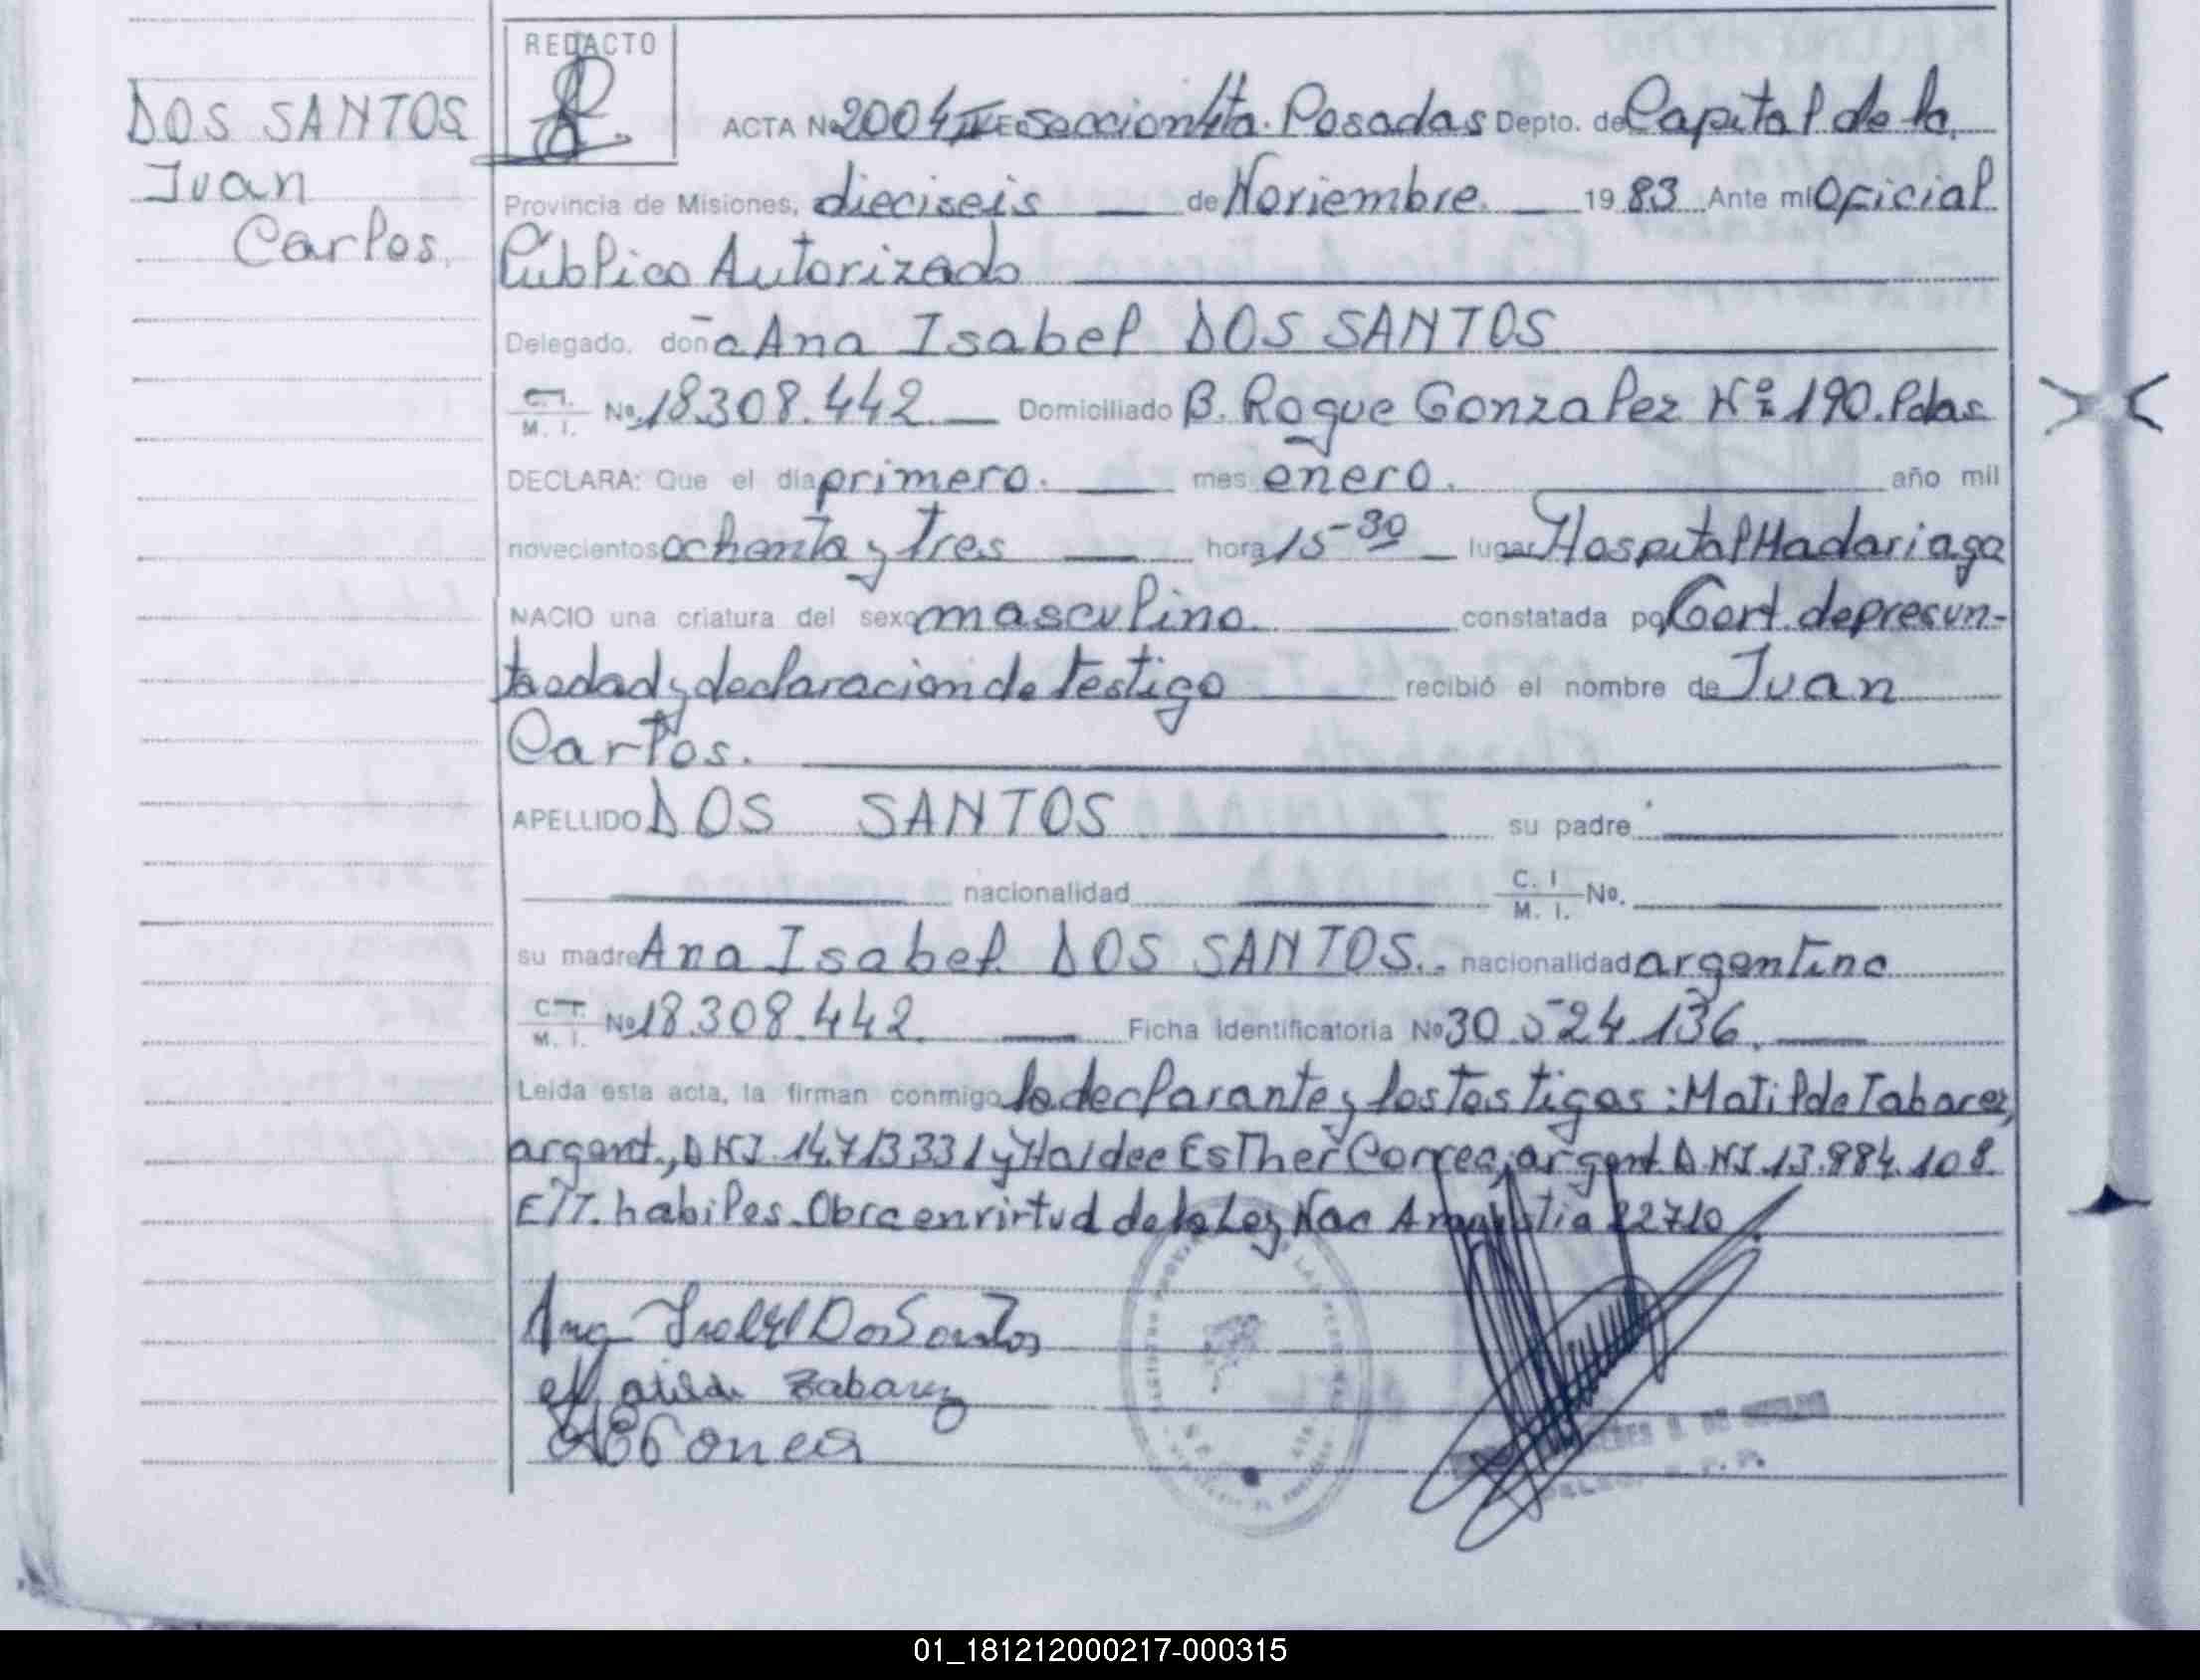 DOS SANTOS
Juan
Carlos.
REDACTO
ACTA No 2004 IV En seccion 4ta. Posadas Depto. de Capital de la
Provincia de Misiones, dieciseis de Noviembre. 1983 Ante mi Oficial
Público Autorizado
Delegado, doña Ana Isabel DOS SANTOS
C.I. M.I. No. 18.308.442. Domiciliado B. Roque Gonzalez Nº 190. Pdas
DECLARA: Que el día primero. mes enero. año mil
novecientos ochenta y tres hora 15-30 lugar Hospital Madariaga
NACIO una criatura del sexo masculino. constatada por Cert. de presun-
ta edad y declaracion de testigo recibió el nombre de Juan
Carlos.
APELLIDO DOS SANTOS su padre
nacionalidad C. I M. I. No.
su madre Ana Isabel DOS SANTOS. nacionalidad argentina
C.I. M.I. No 18.308.442. Ficha Identificatoria No 30.524.136.
Leida esta acta, la firman conmigo la declarante y los testigos: Matilde Tabarez,
argent., DNI. 14.713.331 y Haidee Esther Correa, argent. D.NI. 13.984.108.
E/T. habiles. Obra en virtud de la Ley Nac Amnistia 22710
Ana Isabel Dos Santos
Matilde Tabarez
HECorrea
01_181212000217-000315